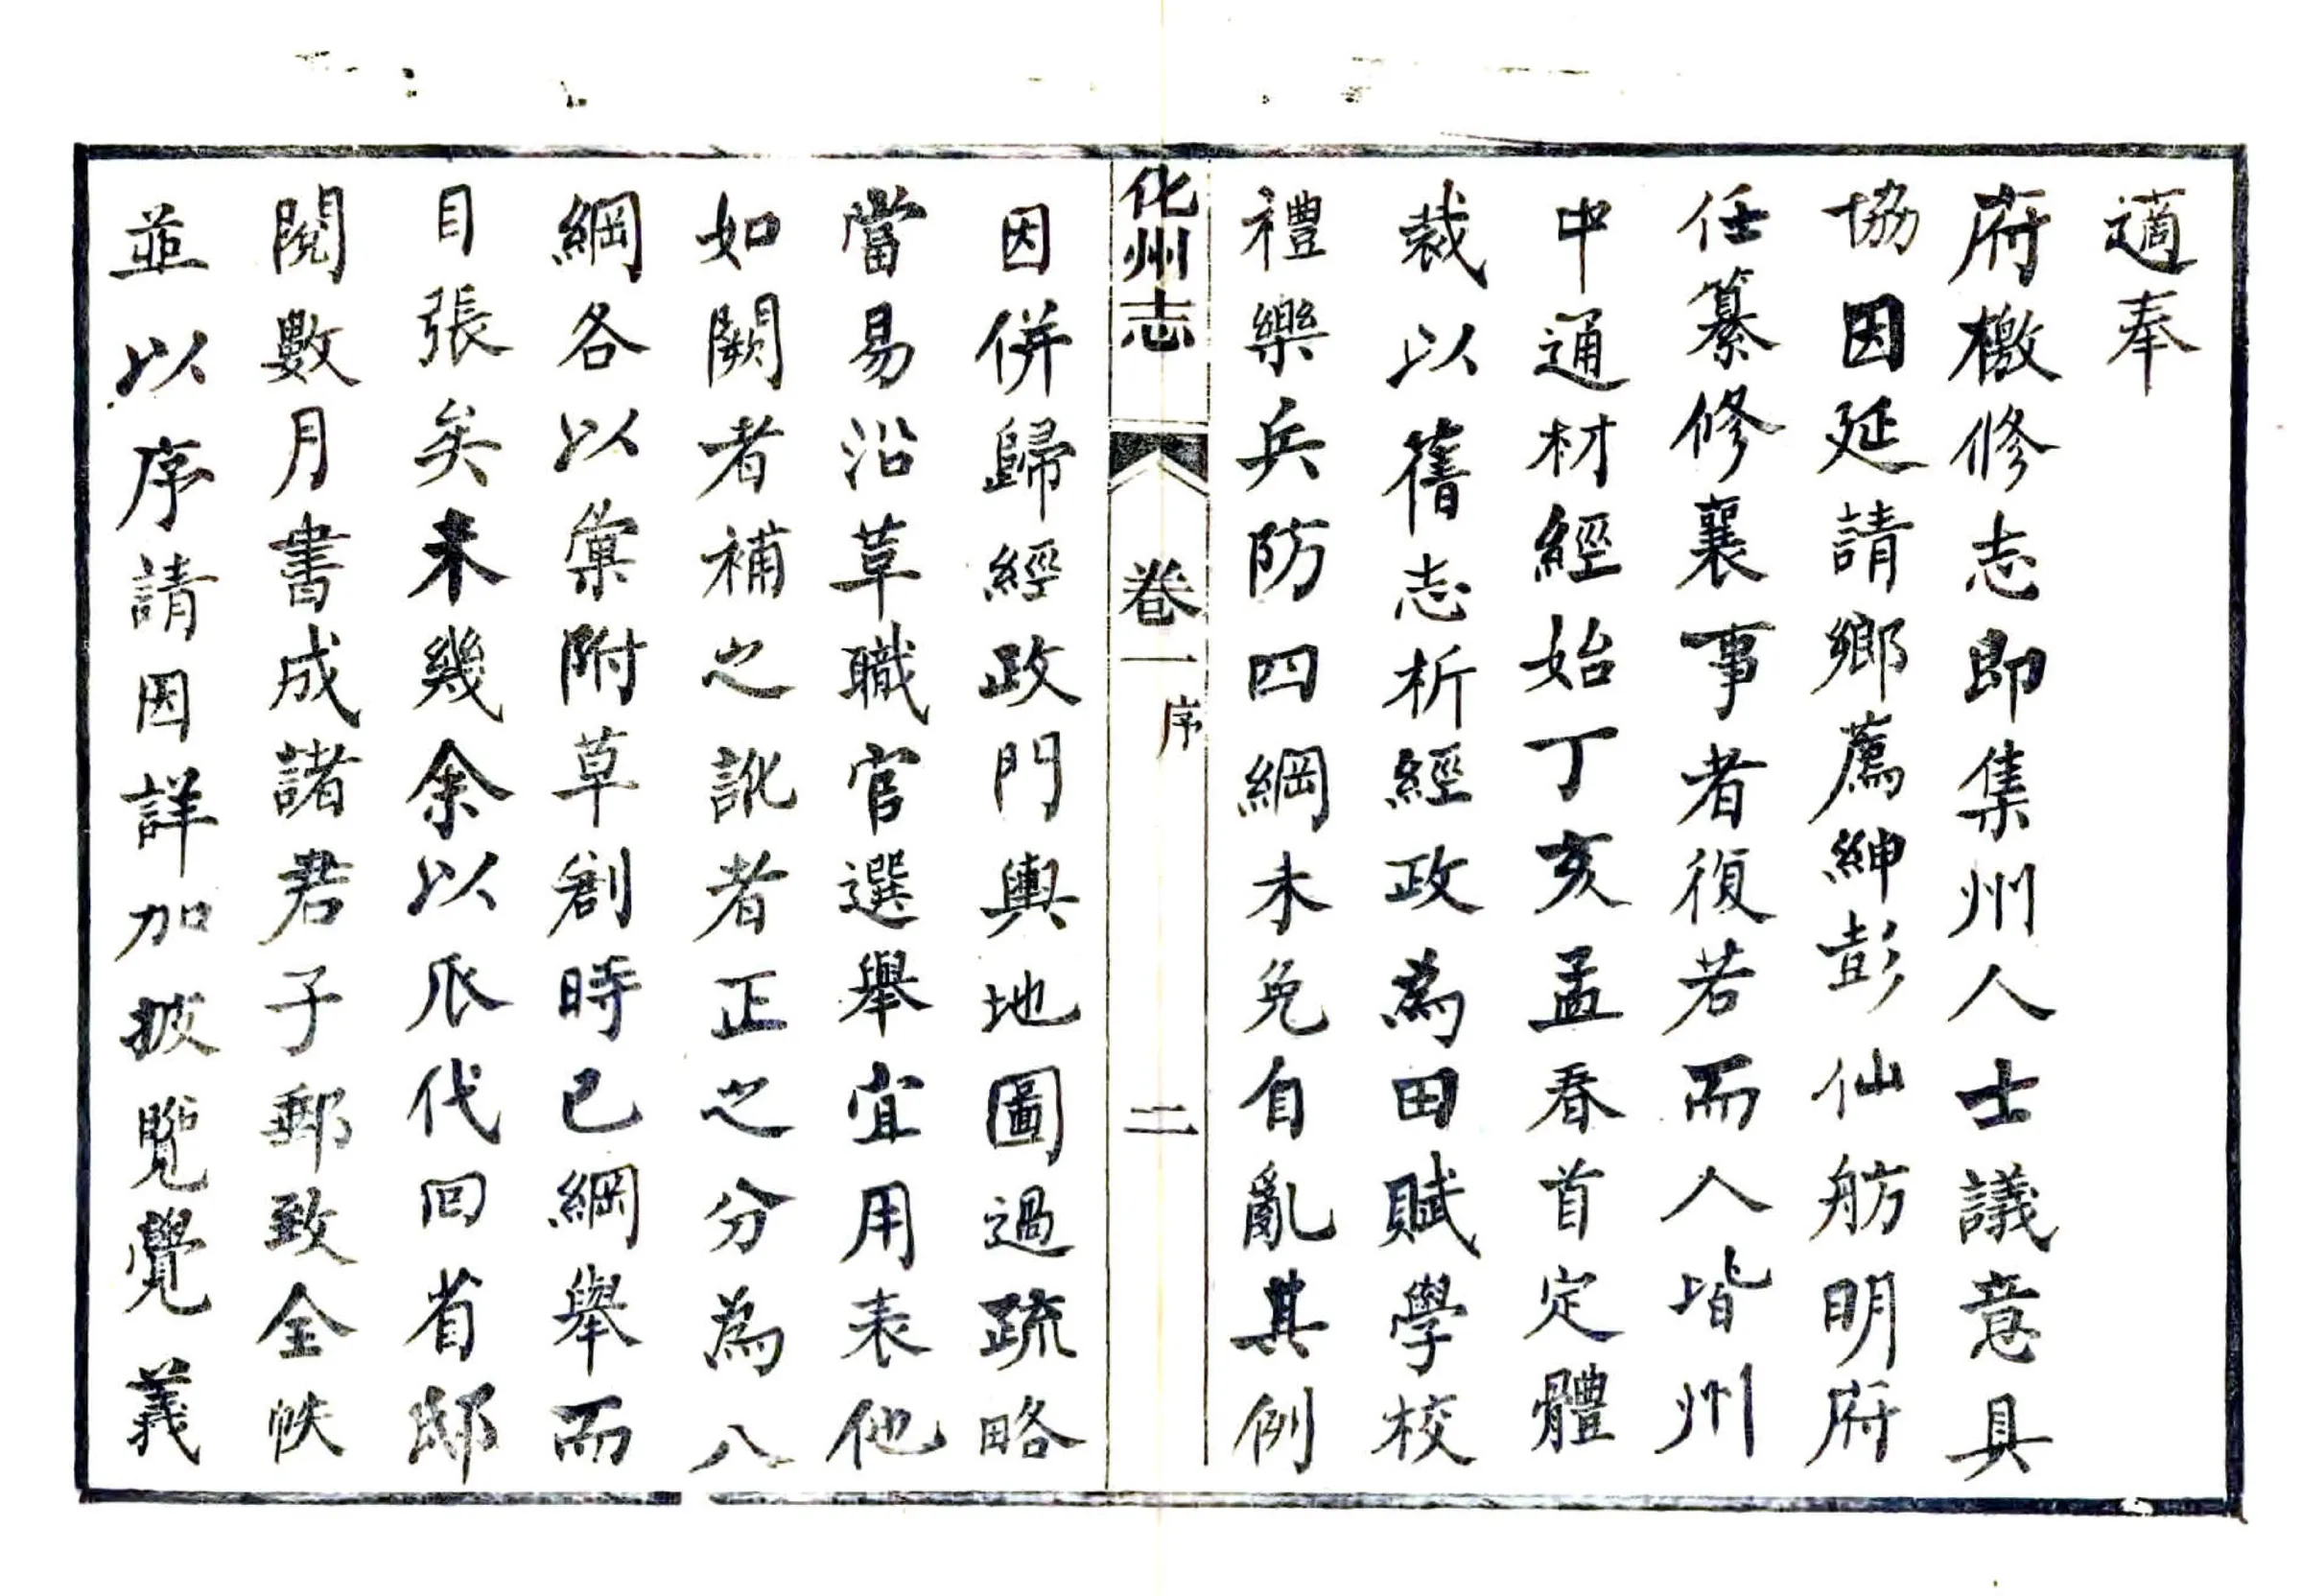 適奉
府檄修志即集州人士議意具
協因延請鄉薦紳彭仙舫明府
任纂修襄事者復若而人皆州
中通材經始丁亥孟春首定體
裁以舊志析經政為田賦學校
禮樂兵防四綱未免自亂其例
化州志 卷一 序 二
因併歸經政門輿地圖過疏略
當易沿革職官選舉宜用表他
如闕者補之訛者正之分為八
綱各以彙附草創時已綱舉而
目張矣未幾余以瓜代回省邸
閱數月書成諸君子郵致全帙
並以序請因詳加披覽覺義